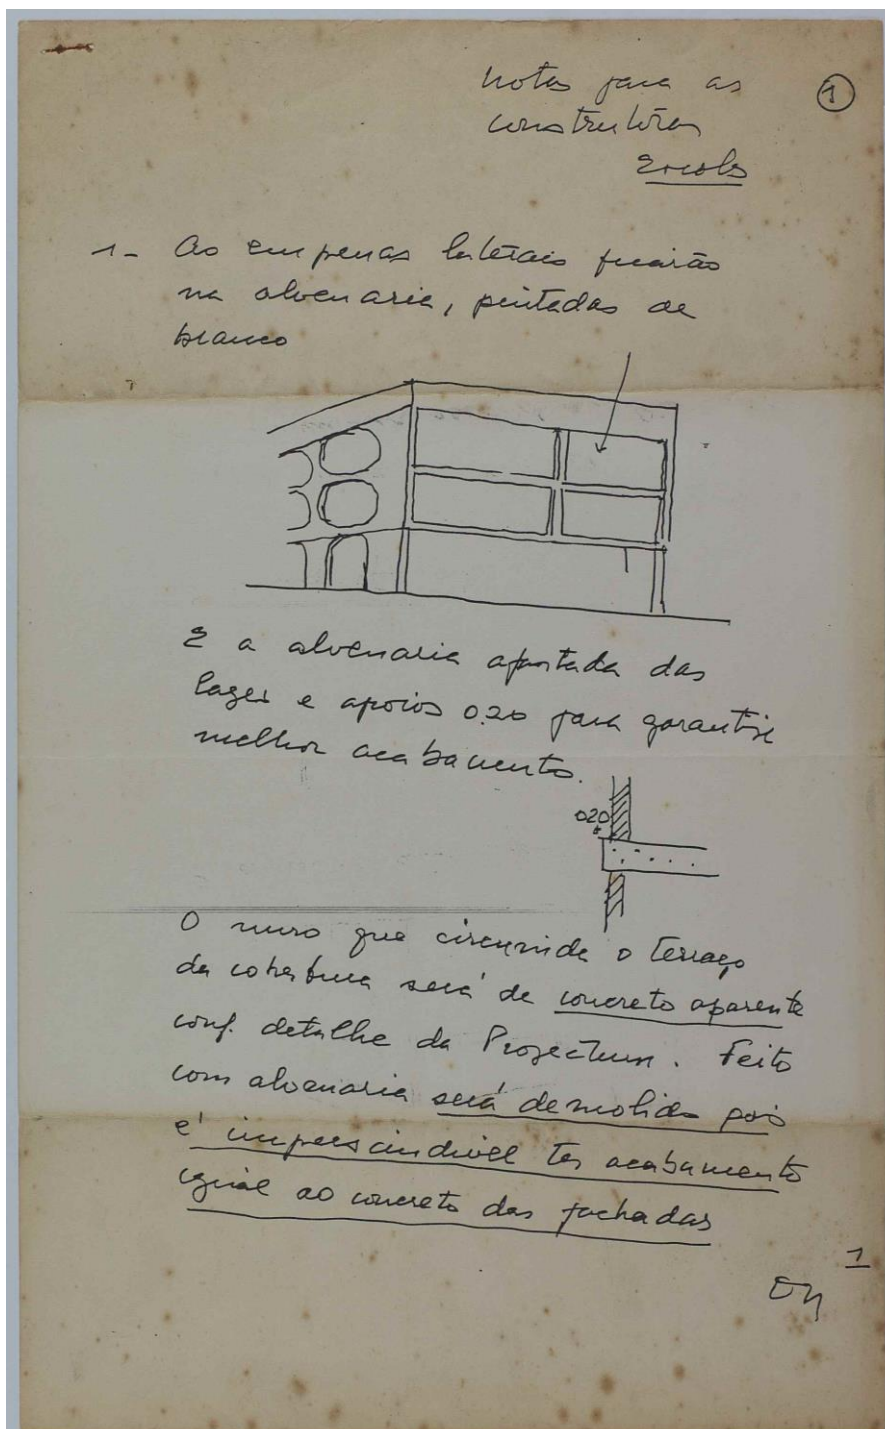 notas para as
construtoras
①
Escolas
1- As empenas laterais ficarão
na alvenaria, pintadas de
branco
E a alvenaria afastada das
lages e apoios 0.20 para garantir
melhor acabamento.
020
O muro que circunda o terraço
da cobertura será de concreto aparente
conf. detalhe da Projectum. Feito
com alvenaria será demolido pois
é imprescindivel ter acabamento
igual ao concreto das fachadas
1
ON